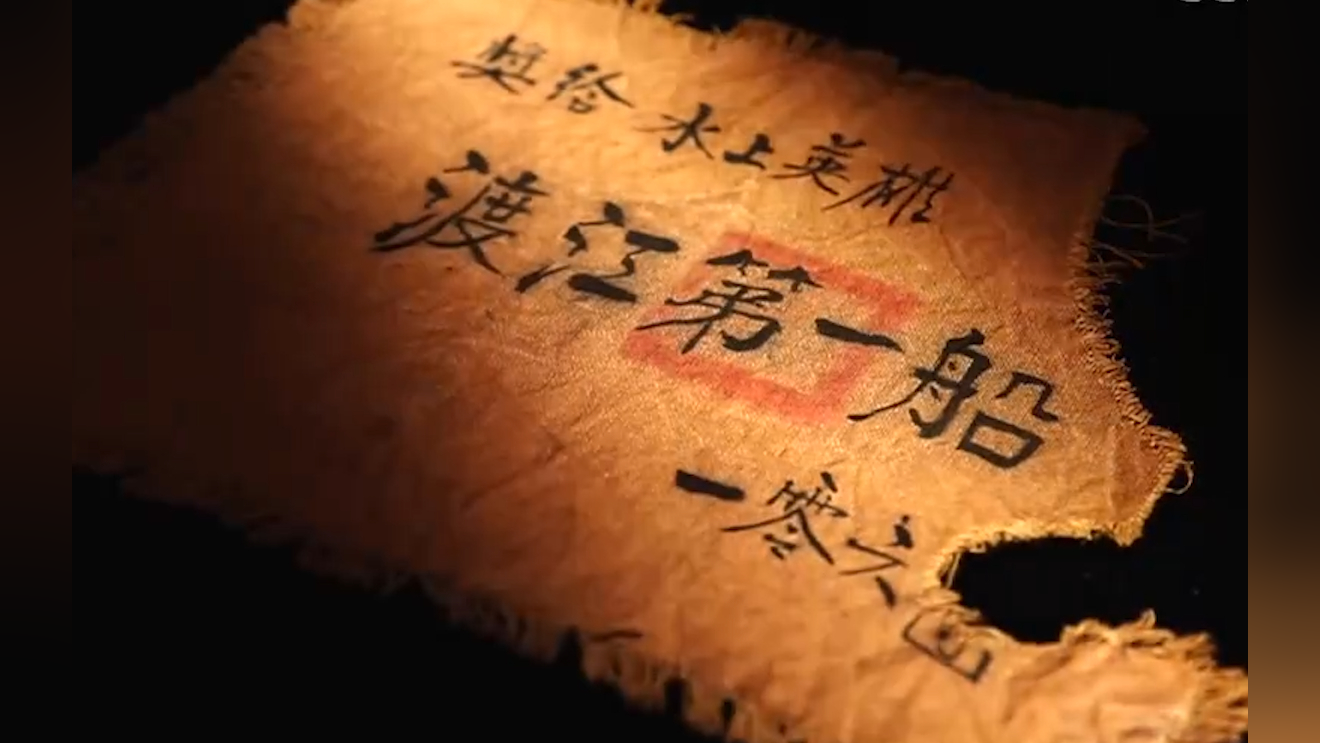 奬给 水上英雄
渡江第一船
一零六团